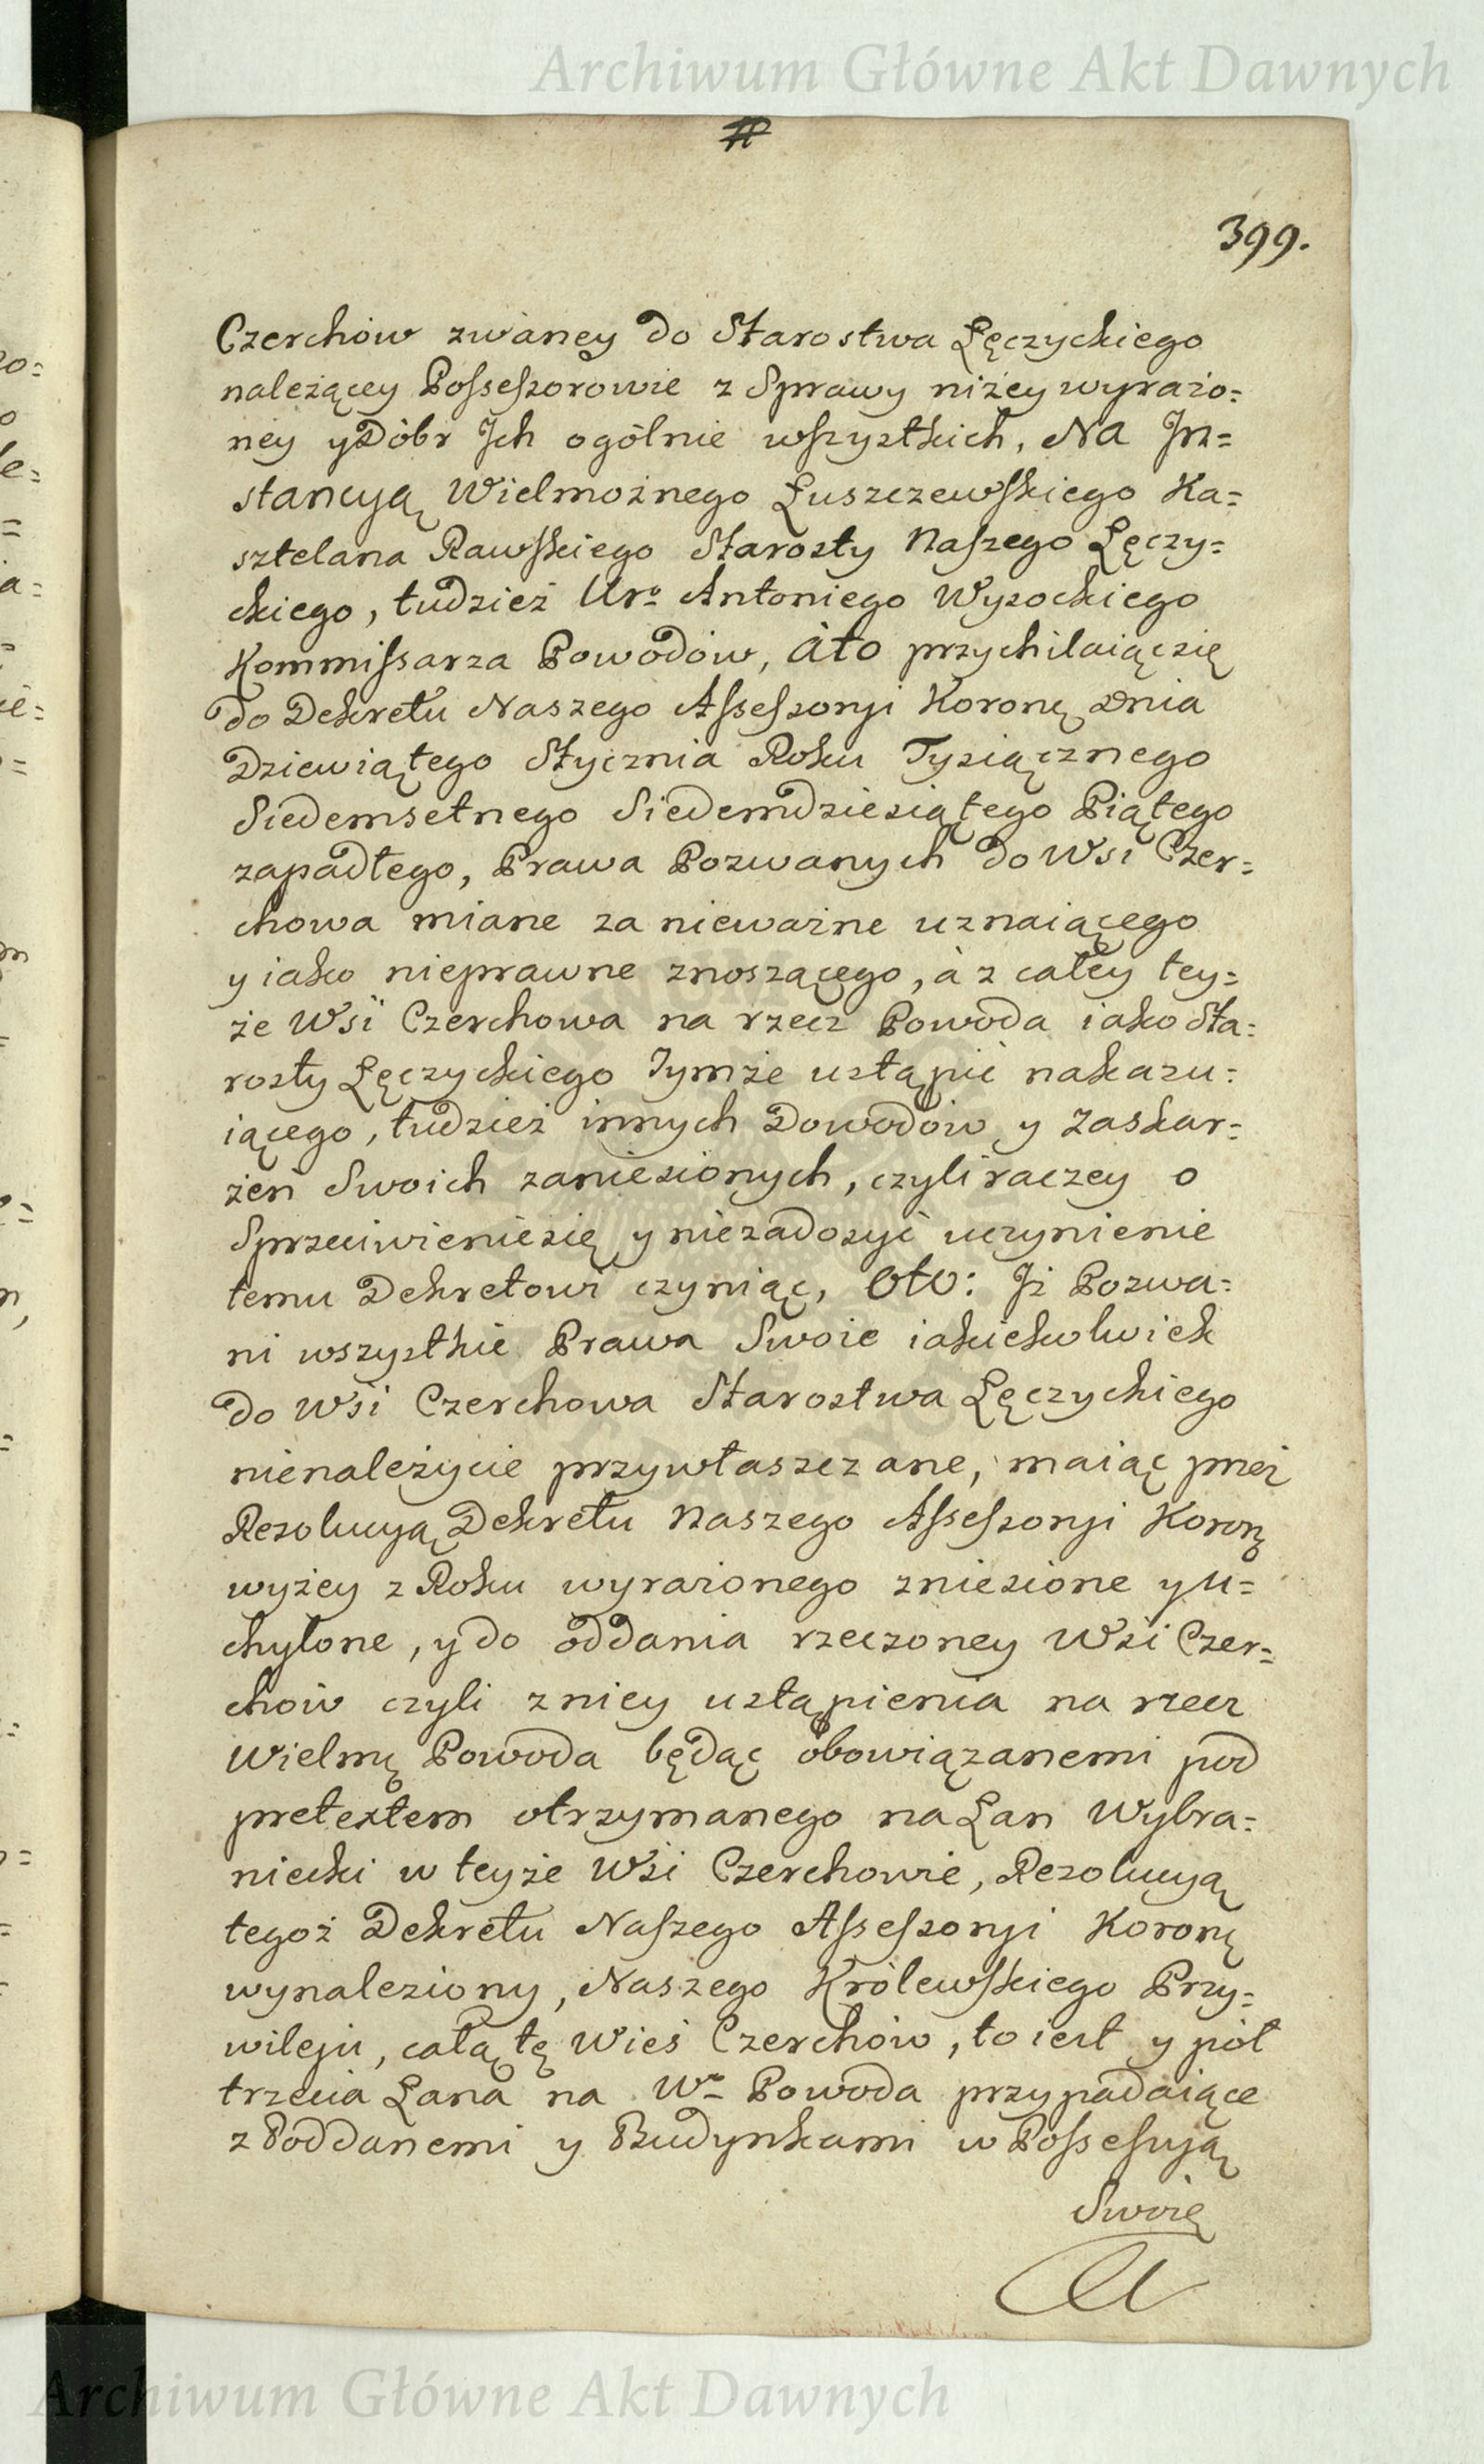 Archiwum Główne Akt Dawnych
#
399.
Czerchów zwáney do Starostwa Łęczyckiego
należącey Possessorowie z Sprawy niżey wyrażo=
ney y Dóbr Jch ogólnie wszystkich, Na In=
stancyą Wielmożnego Łuszczewskiego Ka=
sztelana Rawskiego Starosty Naszego Łęczy=
ckiego, tudzież Uro Antoniego Wysockiego
Kommissarza Powodów, áto przychilaiąc się
do Dekretu Naszego Assessoryi Koronę dnia
Dziewiątego Stycznia Roku Tysiącznego
Siedemsetnego Siedemdziesiątego Piątego
zapadłego, Prawa Pozwanych do Wsi Czer=
chowa miane za nieważne uznaiącego
y iako nieprawne znoszącego, à z całey tey=
że Wsi Czerchowa na rzecz Powoda iako Sta=
rosty Łęczyckiego Jymże ustąpić nakazu=
iącego, tudzież innych Dowodów y Zaskar=
żeń Swoich zaniesionych, czyli raczey o
Sprzeciwienie się y niezadosyć uczynienie
temu Dekretowi czyniąc, Oto: Jż Pozwa=
ni wszystkie Prawa Swoie iakiekolwiek
do Wsi Czerchowa Starostwa Łęczyckiego
nienależycie przywłaszczane, maiąc przez
Rezolucyą Dekretu Naszego Assessoryi Koronę
wyżey z Roku wyrażonego zniesione y u=
chylone, y do oddania rzeczoney Wsi Czer=
chow czyli z niey ustąpienia na rzecz
Wielmę Powoda będąc obowiązanemi pod
pretextem otrzymanego na Łan Wybra=
niecki w teyże Wsi Czerchowie, Rezolucyą
tegoż Dekretu Naszego Assessoryi Koronę
wynaleziony, Naszego Królewskiego Przy=
wileju, całą tę Wieś Czerchów, to iest y pół
trzecia Łana na Wo Powoda przypadaiące
z Poddanemi y Budynkami w Possessyją
Swoię
Archiwum Główne Akt Dawnych